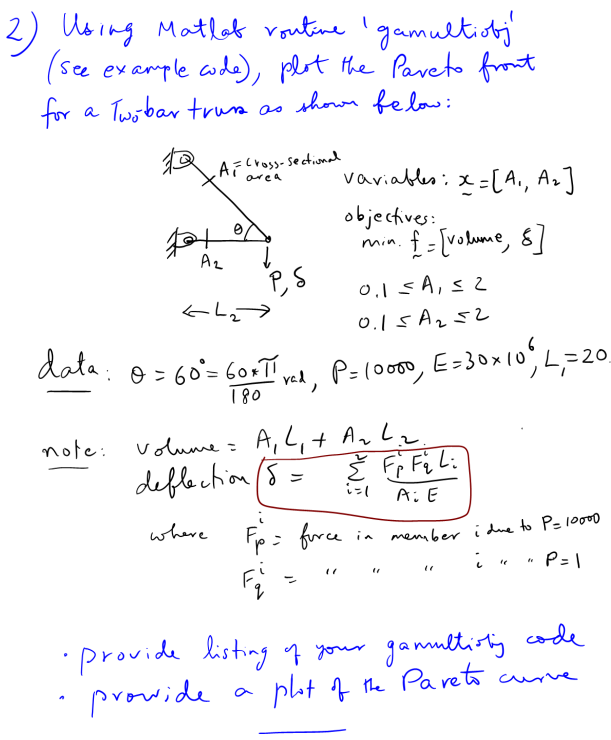 2) Using Matlab routine 'gamultiobj'
(see example code), plot the Pareto front
for a Two-bar truss as shown below:
A₁ = cross-sectional
area
variables: x = [A₁, A₂]
objectives:
min. f = [volume, δ]
θ
A₂
P, δ
0.1 ≤ A₁ ≤ 2
L₂
0.1 ≤ A₂ ≤ 2
data: θ = 60° = 60*π/180 rad, P=10000, E=30×10⁶, L₁=20.
note: volume = A₁L₁ + A₂L₂
deflection δ = Σ_{i=1}^{2} F_p^i F_q^i L_i / A_i E
where F_p^i = force in member i due to P=10000
F_q^i = " " " i " " P=1
· provide listing of your gamultiobj code
· provide a plot of the Pareto curve